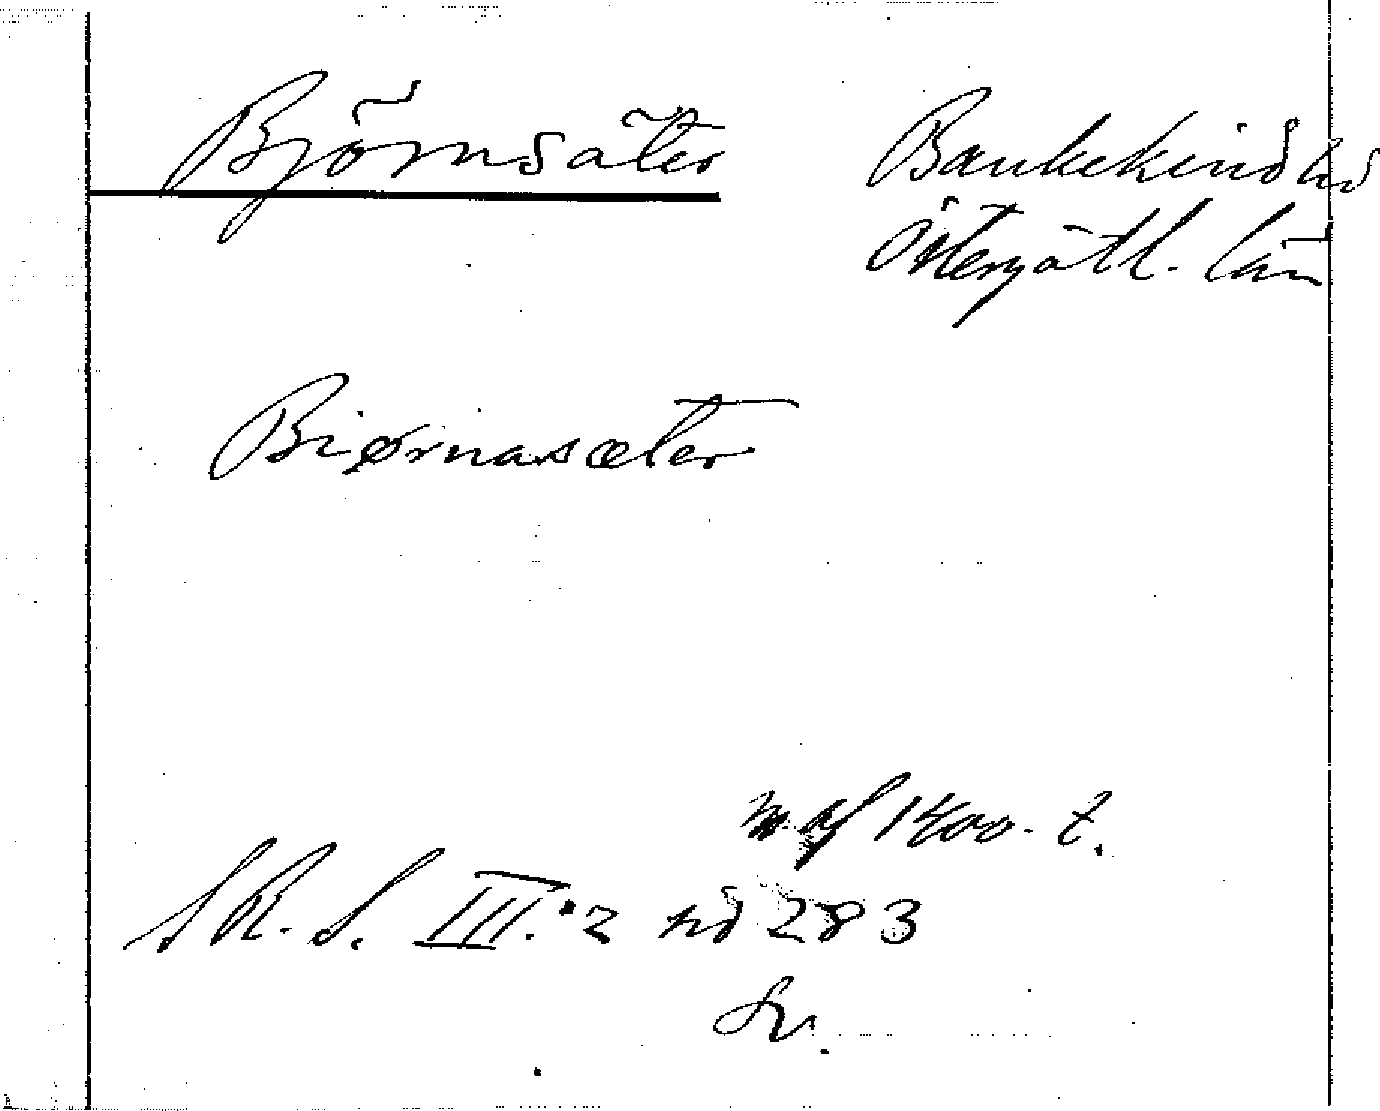 Björnsäter
Bankekinds hd
Östergötl. län
Biørnasæter
m. af 1400-t.
S.R.S. III:2 sid 283
Sv.